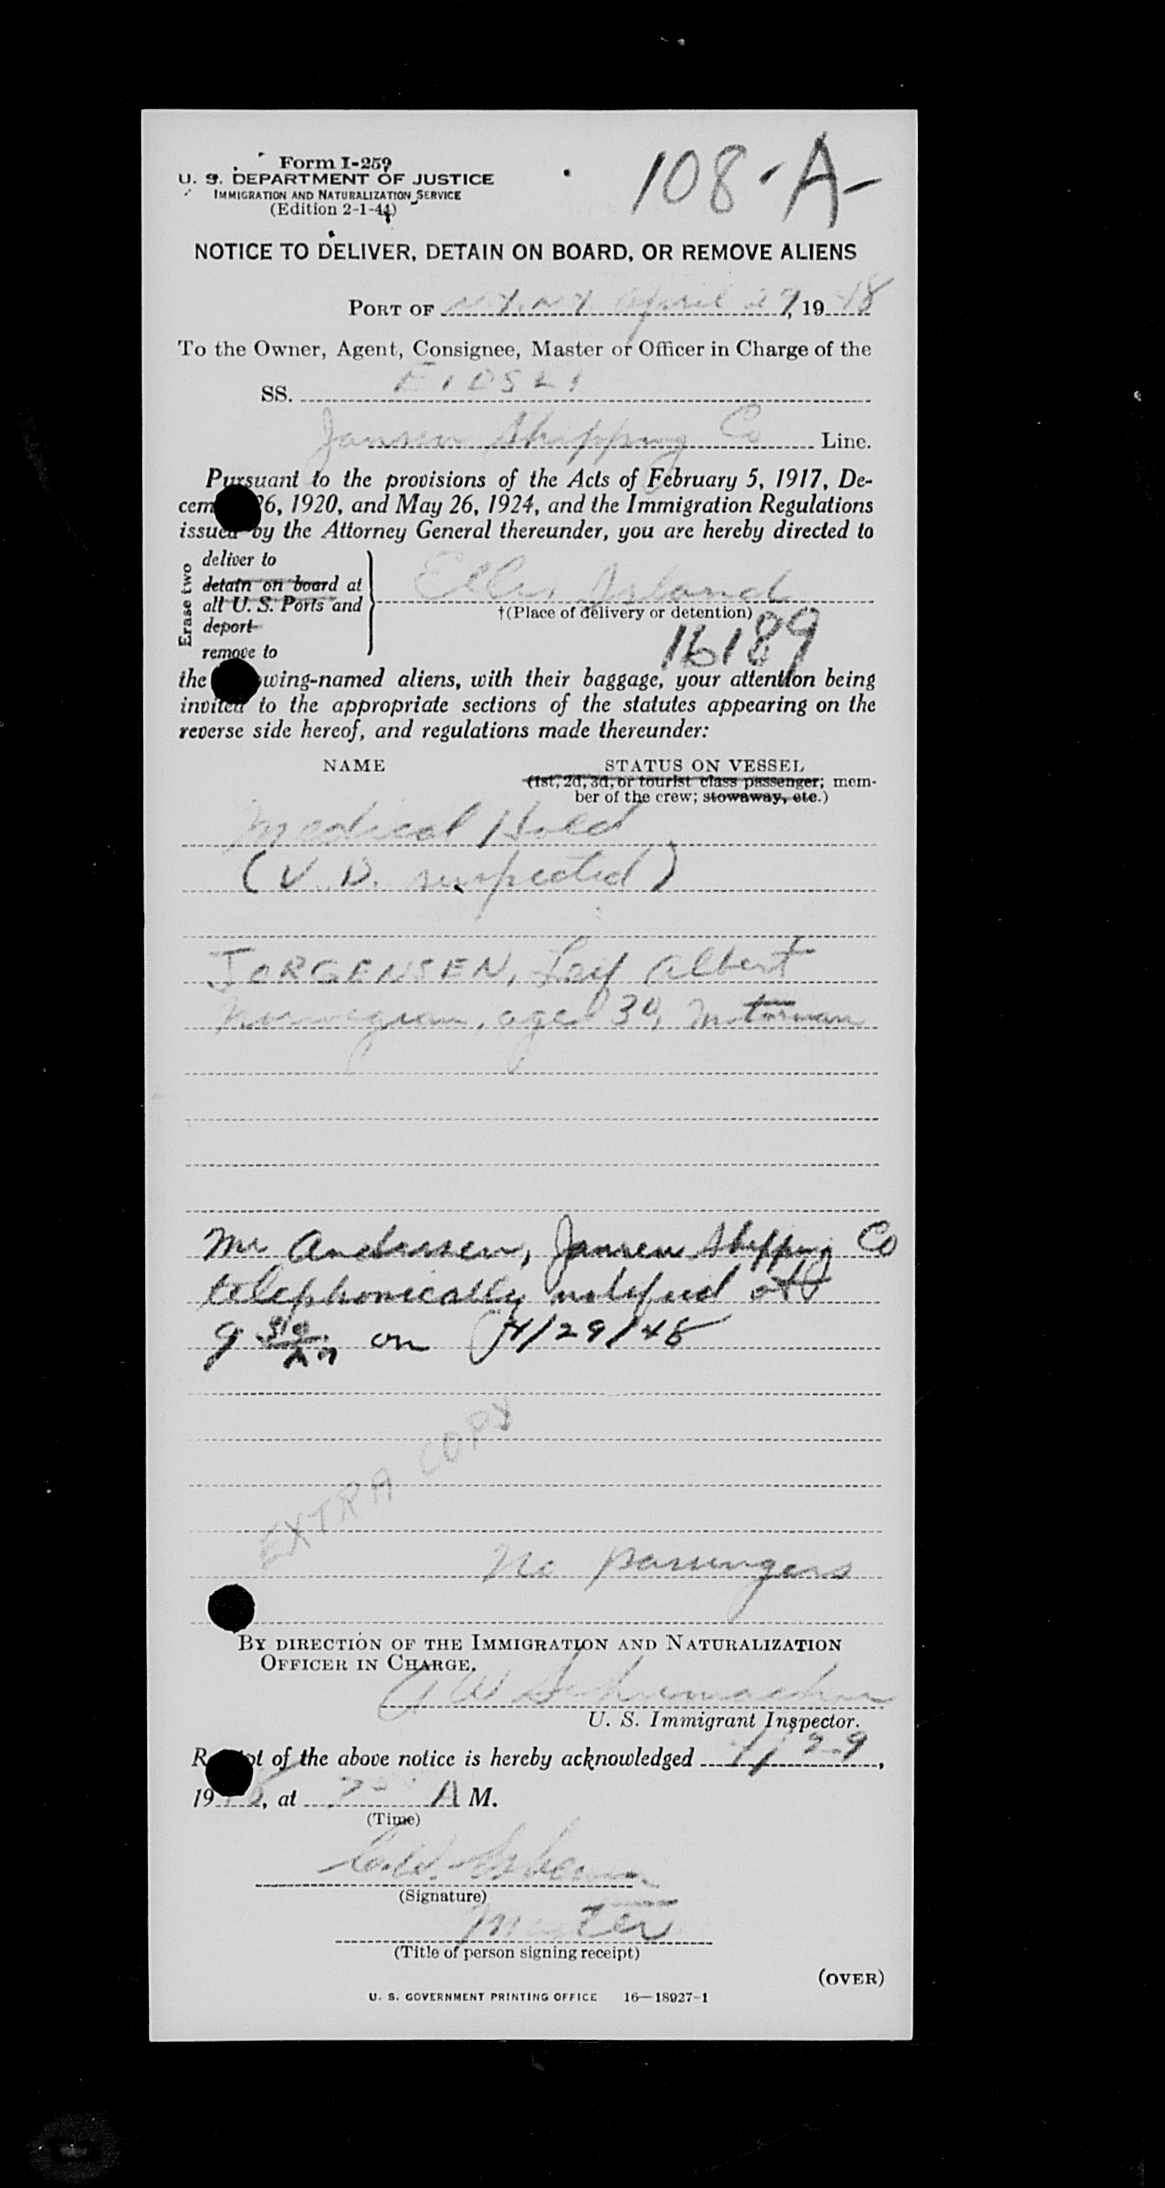 108-A-
Form I-259
U. S. DEPARTMENT OF JUSTICE
IMMIGRATION AND NATURALIZATION SERVICE
(Edition 2-1-44)
NOTICE TO DELIVER, DETAIN ON BOARD, OR REMOVE ALIENS
PORT OF N.Y. N.Y. April 29, 1948
To the Owner, Agent, Consignee, Master or Officer in Charge of the
SS. EIDSLI
Jansen Shipping Co Line.
Pursuant to the provisions of the Acts of February 5, 1917, De-
cem 26, 1920, and May 26, 1924, and the Immigration Regulations
issued by the Attorney General thereunder, you are hereby directed to
Erase two
deliver to
detain on board at
all U. S. Ports and
deport
remove to
Ellis Island
†(Place of delivery or detention)
16189
the wing-named aliens, with their baggage, your attention being
invited to the appropriate sections of the statutes appearing on the
reverse side hereof, and regulations made thereunder:
NAME STATUS ON VESSEL
(1st, 2d, 3d, or tourist class passenger; mem-
ber of the crew; stowaway, etc.)
Medical Hold
(V.D. suspected)
JORGENSEN, Leif Albert
Norwegian, age 30, Motorman
Mr Andersen, Jansen Shipping Co
telephonically notified at
9 30 AM on 4/29/48
EXTRA COPY
No passengers
BY DIRECTION OF THE IMMIGRATION AND NATURALIZATION
OFFICER IN CHARGE.
A W Schumacher
U. S. Immigrant Inspector.
R t of the above notice is hereby acknowledged 4/29,
1948, at A M.
(Time)
(Signature)
Master
(Title of person signing receipt)
(OVER)
U. S. GOVERNMENT PRINTING OFFICE 16—18927-1